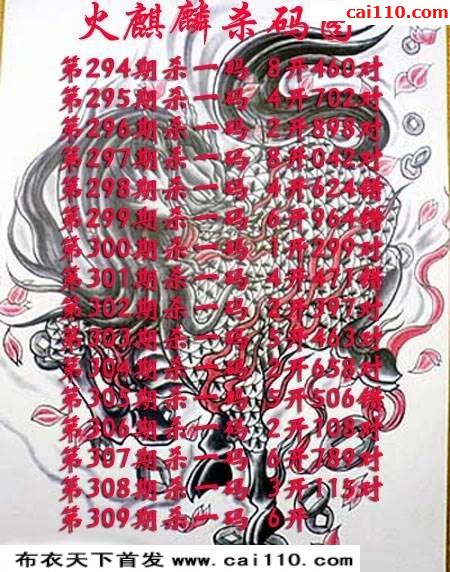 cai110.com
火麒麟杀码
第294期杀一码 8开460对
第295期杀一码 4开702对
第296期杀一码 2开898对
第297期杀一码 8开042对
第298期杀一码 4开624错
第299期杀一码 6开964错
第300期杀一码 1开299对
第301期杀一码 4开471错
第302期杀一码 2开397对
第303期杀一码 5开463对
第304期杀一码 2开658对
第305期杀一码 5开506错
第306期杀一码 2开108对
第307期杀一码 6开789对
第308期杀一码 3开115对
第309期杀一码 6开
布衣天下首发 www.cai110.com